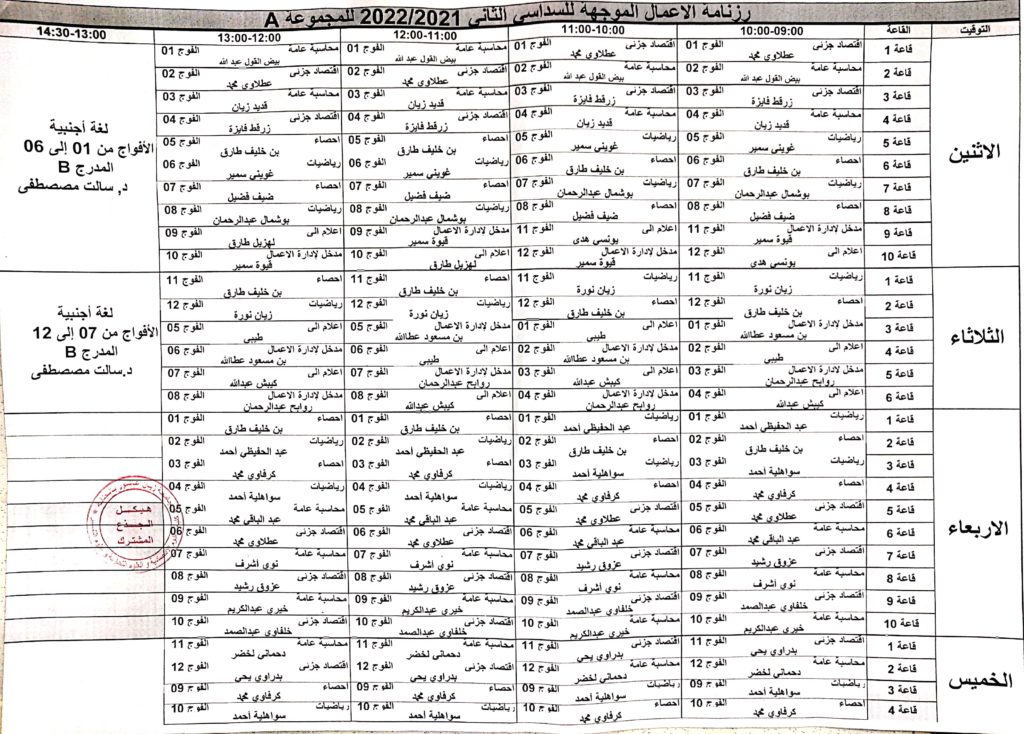 رزنامة الاعمال الموجهة للسداسي الثاني 2022/2021 للمجموعة A
التوقيت القاعة 10:00-09:00 11:00-10:00 12:00-11:00 13:00-12:00 14:30-13:00
الاثنين
قاعة 1 اقتصاد جزئى الفوج 01 اقتصاد جزئى الفوج 01 محاسبة عامة الفوج 01 محاسبة عامة الفوج 01
عطلاوي محمد عطلاوي محمد بيض القول عبد الله بيض القول عبد الله
قاعة 2 محاسبة عامة الفوج 02 محاسبة عامة الفوج 02 اقتصاد جزئى الفوج 02 اقتصاد جزئى الفوج 02
بيض القول عبد الله بيض القول عبد الله عطلاوي محمد عطلاوي محمد
قاعة 3 اقتصاد جزئى الفوج 03 اقتصاد جزئى الفوج 03 محاسبة عامة الفوج 03 محاسبة عامة الفوج 03
زرقط فايزة زرقط فايزة قديد زيان قديد زيان
قاعة 4 محاسبة عامة الفوج 04 محاسبة عامة الفوج 04 اقتصاد جزئى الفوج 04 اقتصاد جزئى الفوج 04
قديد زيان قديد زيان زرقط فايزة زرقط فايزة
قاعة 5 رياضيات الفوج 05 رياضيات الفوج 05 احصاء الفوج 05 احصاء الفوج 05
غويني سمير غويني سمير بن خليف طارق بن خليف طارق
قاعة 6 احصاء الفوج 06 احصاء الفوج 06 رياضيات الفوج 06 رياضيات الفوج 06
بن خليف طارق بن خليف طارق غويني سمير غويني سمير
قاعة 7 رياضيات الفوج 07 رياضيات الفوج 07 احصاء الفوج 07 احصاء الفوج 07
بوشمال عبدالرحمان بوشمال عبدالرحمان ضيف فضيل ضيف فضيل
قاعة 8 احصاء الفوج 08 احصاء الفوج 08 رياضيات الفوج 08 رياضيات الفوج 08
ضيف فضيل ضيف فضيل بوشمال عبدالرحمان بوشمال عبدالرحمان
قاعة 9 مدخل لإدارة الاعمال الفوج 11 اعلام الى الفوج 11 مدخل لإدارة الاعمال الفوج 09 اعلام الى الفوج 09
قيوة سمير يونسي هدى قيوة سمير لهزيل طارق
قاعة 10 اعلام الى الفوج 12 مدخل لإدارة الاعمال الفوج 12 اعلام الى الفوج 10 مدخل لإدارة الاعمال الفوج 10
يونسي هدى قيوة سمير لهزيل طارق قيوة سمير
لغة أجنبية
الأفواج من 01 إلى 06
المدرج B
د, سالت مصصطفى
الثلاثاء
قاعة 1 رياضيات الفوج 11 رياضيات الفوج 11 احصاء الفوج 11 احصاء الفوج 11
زيان نورة زيان نورة بن خليف طارق بن خليف طارق
قاعة 2 احصاء الفوج 12 احصاء الفوج 12 رياضيات الفوج 12 رياضيات الفوج 12
بن خليف طارق بن خليف طارق زيان نورة زيان نورة
قاعة 3 مدخل لإدارة الاعمال الفوج 01 اعلام الى الفوج 01 مدخل لإدارة الاعمال الفوج 05 اعلام الى الفوج 05
بن مسعود عطاالله طيبى بن مسعود عطاالله طيبى
قاعة 4 اعلام الى الفوج 02 مدخل لإدارة الاعمال الفوج 02 اعلام الى الفوج 06 مدخل لإدارة الاعمال الفوج 06
طيبى بن مسعود عطاالله طيبى بن مسعود عطاالله
قاعة 5 مدخل لإدارة الاعمال الفوج 03 اعلام الى الفوج 03 مدخل لإدارة الاعمال الفوج 07 اعلام الى الفوج 07
روابح عبدالرحمان كبيش عبدالله روابح عبدالرحمان كبيش عبدالله
قاعة 6 اعلام الى الفوج 04 مدخل لإدارة الاعمال الفوج 04 اعلام الى الفوج 08 مدخل لإدارة الاعمال الفوج 08
كبيش عبدالله روابح عبدالرحمان كبيش عبدالله روابح عبدالرحمان
لغة أجنبية
الأفواج من 07 إلى 12
المدرج B
د.سالت مصصطفى
الاربعاء
قاعة 1 رياضيات الفوج 01 رياضيات الفوج 01 احصاء الفوج 01 احصاء الفوج 01
عبد الحفيظي أحمد عبد الحفيظي أحمد بن خليف طارق بن خليف طارق
قاعة 2 احصاء الفوج 02 احصاء الفوج 02 رياضيات الفوج 02 رياضيات الفوج 02
بن خليف طارق بن خليف طارق عبد الحفيظي أحمد عبد الحفيظي أحمد
قاعة 3 رياضيات الفوج 03 رياضيات الفوج 03 احصاء الفوج 03 احصاء الفوج 03
سواهلية أحمد سواهلية أحمد كرفاوي محمد كرفاوي محمد
قاعة 4 احصاء الفوج 04 احصاء الفوج 04 رياضيات الفوج 04 رياضيات الفوج 04
كرفاوي محمد كرفاوي محمد سواهلية أحمد سواهلية أحمد
قاعة 5 اقتصاد جزئى الفوج 05 اقتصاد جزئى الفوج 05 محاسبة عامة الفوج 05 محاسبة عامة الفوج 05
عطلاوي محمد عطلاوي محمد عبد الباقي محمد عبد الباقي محمد
قاعة 6 محاسبة عامة الفوج 06 محاسبة عامة الفوج 06 اقتصاد جزئى الفوج 06 اقتصاد جزئى الفوج 06
عبد الباقي محمد عبد الباقي محمد عطلاوي محمد عطلاوي محمد
قاعة 7 اقتصاد جزئى الفوج 07 اقتصاد جزئى الفوج 07 محاسبة عامة الفوج 07 محاسبة عامة الفوج 07
عزوق رشيد عزوق رشيد نوي أشرف نوي أشرف
قاعة 8 محاسبة عامة الفوج 08 محاسبة عامة الفوج 08 اقتصاد جزئى الفوج 08 اقتصاد جزئى الفوج 08
نوي أشرف نوي أشرف عزوق رشيد عزوق رشيد
قاعة 9 اقتصاد جزئى الفوج 09 اقتصاد جزئى الفوج 09 محاسبة عامة الفوج 09 محاسبة عامة الفوج 09
خلفاوي عبدالصمد خلفاوي عبدالصمد خيري عبدالكريم خيري عبدالكريم
قاعة 10 محاسبة عامة الفوج 10 محاسبة عامة الفوج 10 اقتصاد جزئى الفوج 10 اقتصاد جزئى الفوج 10
خيري عبدالكريم خيري عبدالكريم خلفاوي عبدالصمد خلفاوي عبدالصمد
هيكل
الجذع
المشترك
الخميس
قاعة 1 اقتصاد جزئى الفوج 11 اقتصاد جزئى الفوج 11 محاسبة عامة الفوج 11 محاسبة عامة الفوج 11
بدراوي يحي بدراوي يحي دحماني لخضر دحماني لخضر
قاعة 2 محاسبة عامة الفوج 12 محاسبة عامة الفوج 12 اقتصاد جزئى الفوج 12 اقتصاد جزئى الفوج 12
دحماني لخضر دحماني لخضر بدراوي يحي بدراوي يحي
قاعة 3 رياضيات الفوج 09 رياضيات الفوج 09 احصاء الفوج 09 احصاء الفوج 09
سواهلية أحمد سواهلية أحمد كرفاوي محمد كرفاوي محمد
قاعة 4 احصاء الفوج 10 احصاء الفوج 10 رياضيات الفوج 10 رياضيات الفوج 10
كرفاوي محمد كرفاوي محمد سواهلية أحمد سواهلية أحمد